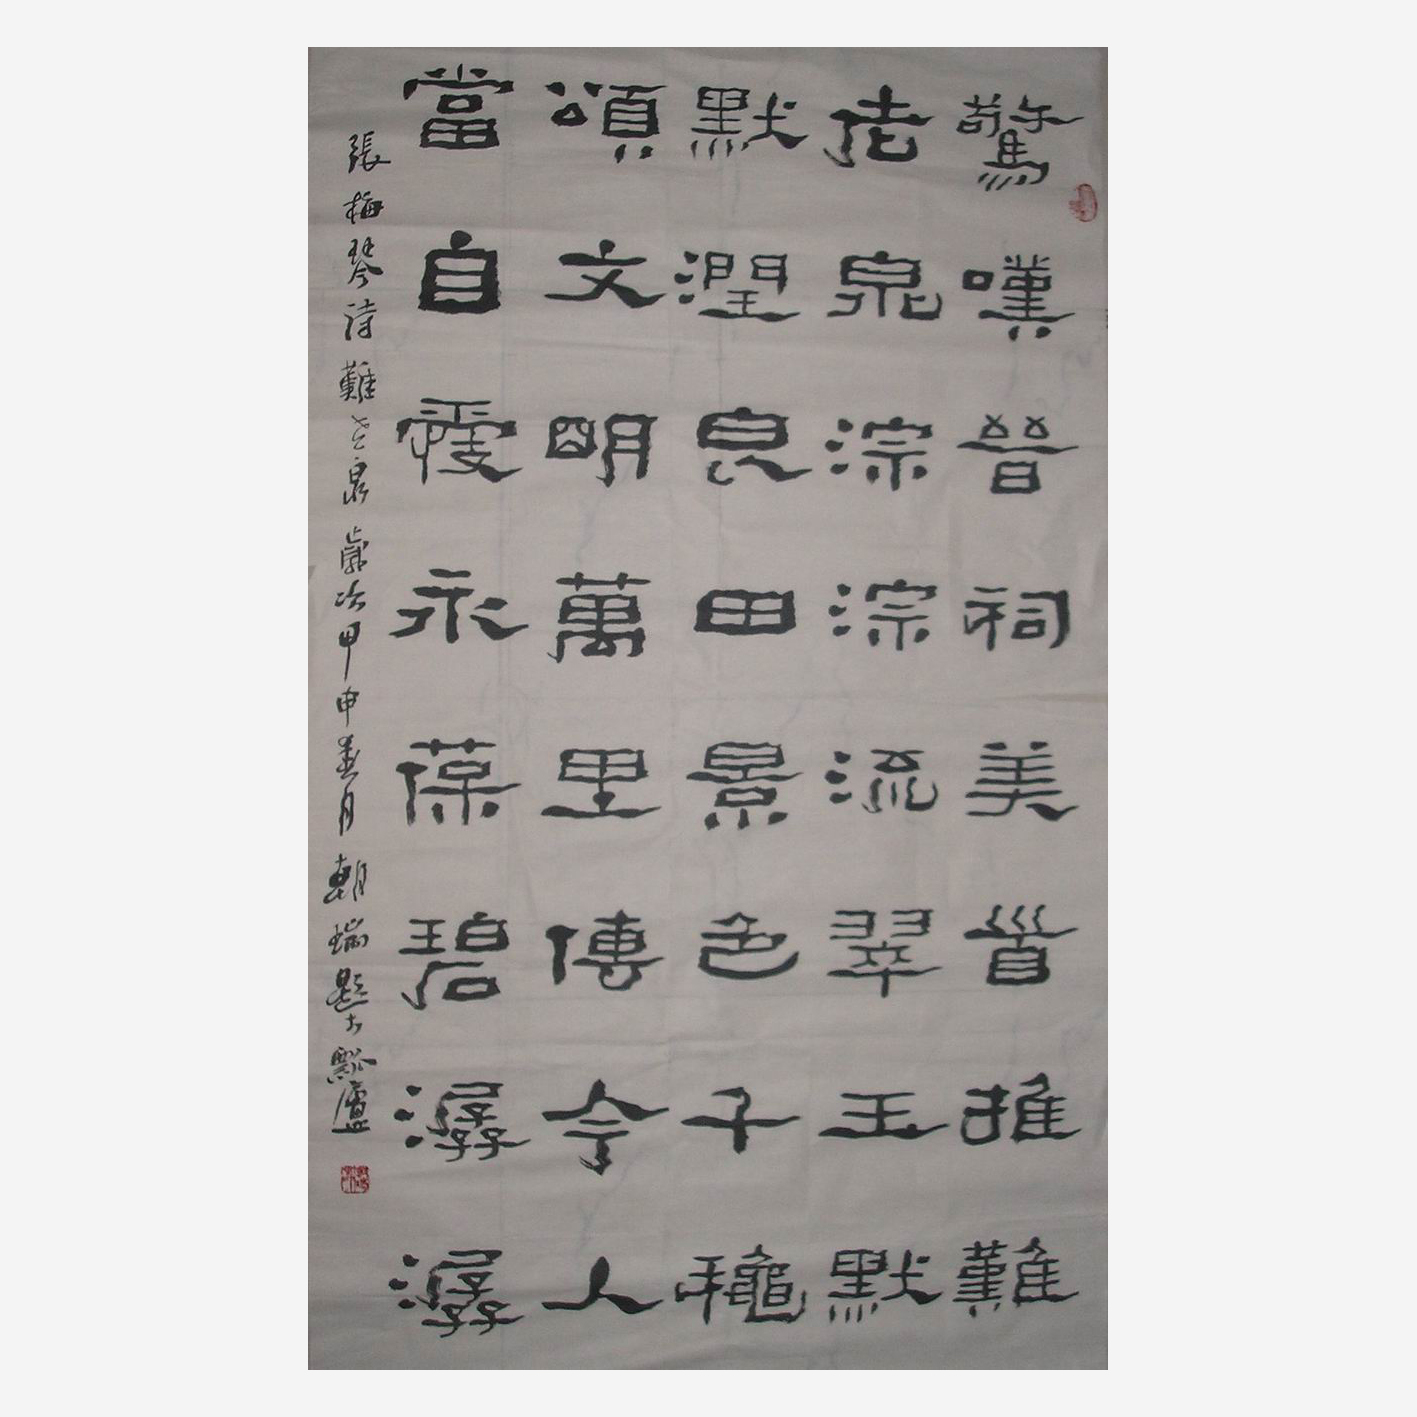 驚嘆晉祠美首推難
老泉淙淙流翠玉默
默潤良田景色千穐
頌文明萬里傳今人
當自愛永葆碧潺潺
張梅琴詩難老泉 歲次甲申 月 朝瑞 於 廬